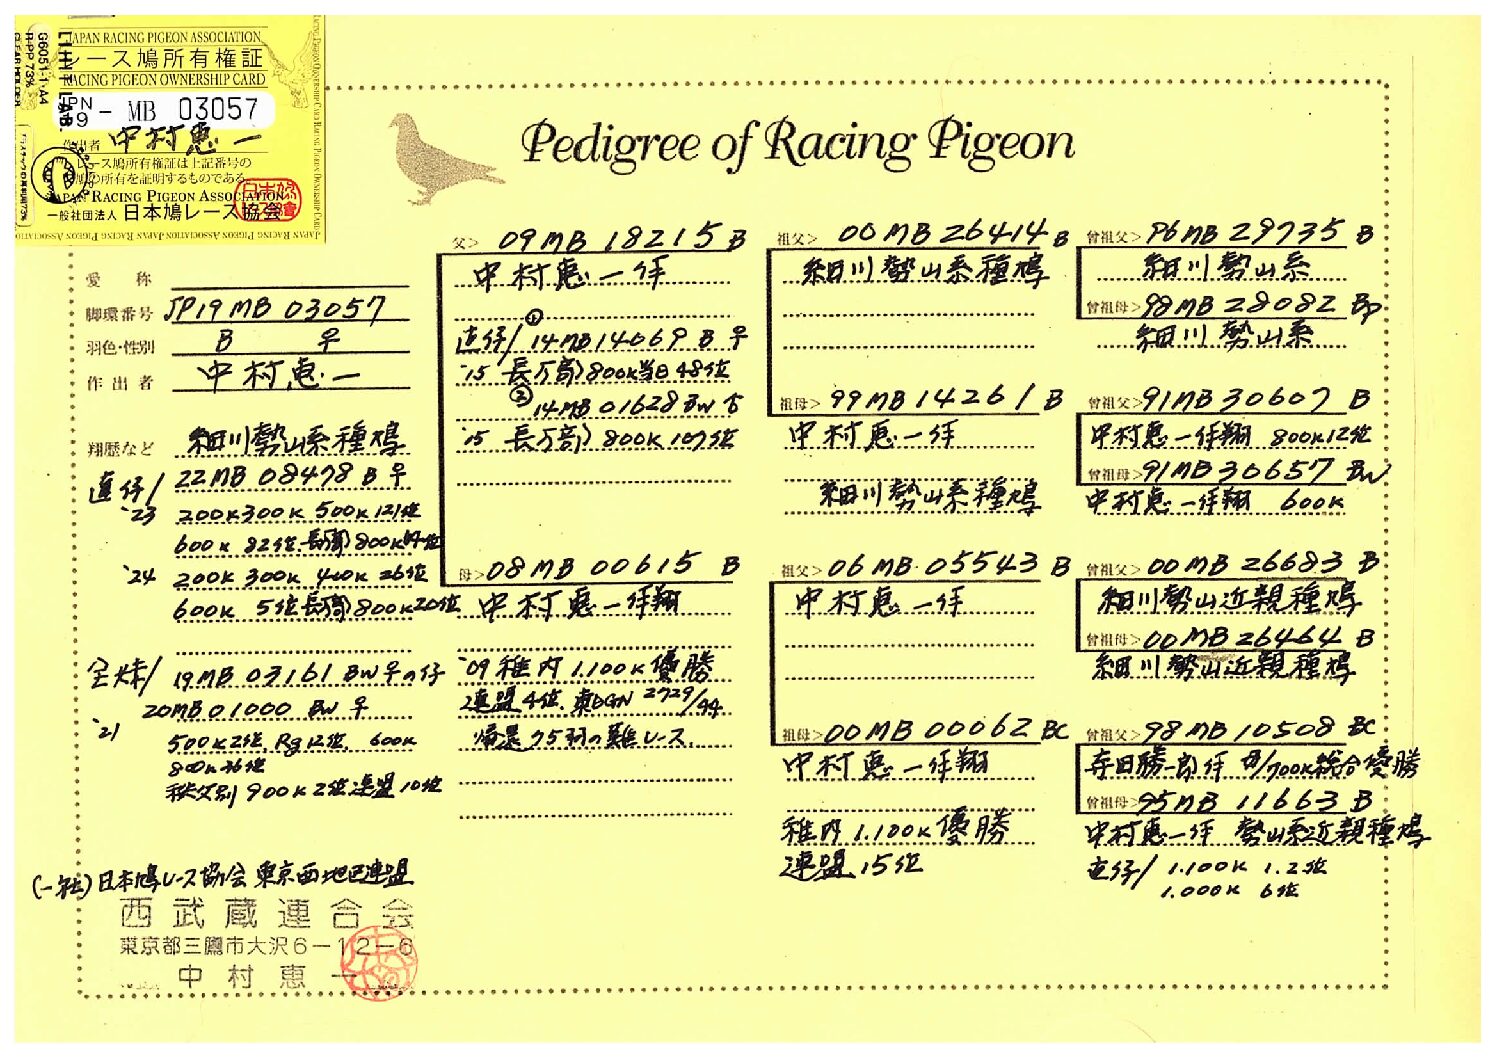 JAPAN RACING PIGEON ASSOCIATION
レース鳩所有権証
RACING PIGEON OWNERSHIP CARD
JPN
19 - MB 03057
作出者 中村惠一
レース鳩所有権証は上記番号の
鳩の所有を証明するものである。
JAPAN RACING PIGEON ASSOCIATION
一般社団法人 日本鳩レース協会
G6051-1-A4
Pedigree of Racing Pigeon
愛称
脚環番号 JP19MB 03057
羽色・性別 B ♀
作出者 中村惠一
翔歴など 細川勢山系種鳩
直仔/ 22MB 08478 B ♀
'23 200K 300K 500K 121位
600K 82位
'24 200K 300K 400K 26位
600K 5位 長万部 800K 20位
全姉/ 19MB 03161 BW ♀の仔
20MB 01000 BW ♀
'21 500K 2位 Rg 12位 600K
800K 36位
秩父別 900K 2位 連盟 10位
(一社)日本鳩レース協会 東京西地区連盟
西武蔵連合会
東京都三鷹市大沢6-12-6
中村惠一
父> 09MB 18215 B
中村惠一作
直仔/ ① 14MB 14069 B ♀
'15 長万部 800K 当日 48位
② 14MB 01628 BW ♂
'15 長万部 800K 107位
母> 08MB 00615 B
中村惠一作翔
'09 稚内 1.100K 優勝
連盟 4位. 東DGN 2729/94
帰還 75羽の難レース
祖父> 00MB 26414 B
細川勢山系種鳩
祖母> 99MB 14261 B
中村惠一作
細川勢山系種鳩
祖父> 06MB 05543 B
中村惠一作
祖母> 00MB 00062 BC
中村惠一作翔
稚内 1.100K 優勝
連盟 15位
曽祖父> 96MB 29735 B
細川勢山系
曽祖母> 98MB 28082 BP
細川勢山系
曽祖父> 91MB 30607 B
中村惠一作翔 800K 12位
曽祖母> 91MB 30657 BW
中村惠一作翔 600K
曽祖父> 00MB 26683 B
細川勢山近親種鳩
曽祖母> 00MB 26464 B
細川勢山近親種鳩
曽祖父> 98MB 10508 BC
寺田勝一郎作 700K 総合優勝
曽祖母> 95MB 11663 B
中村惠一作 勢山系近親種鳩
直仔/ 1.100K 1.2位
1.000K 6位